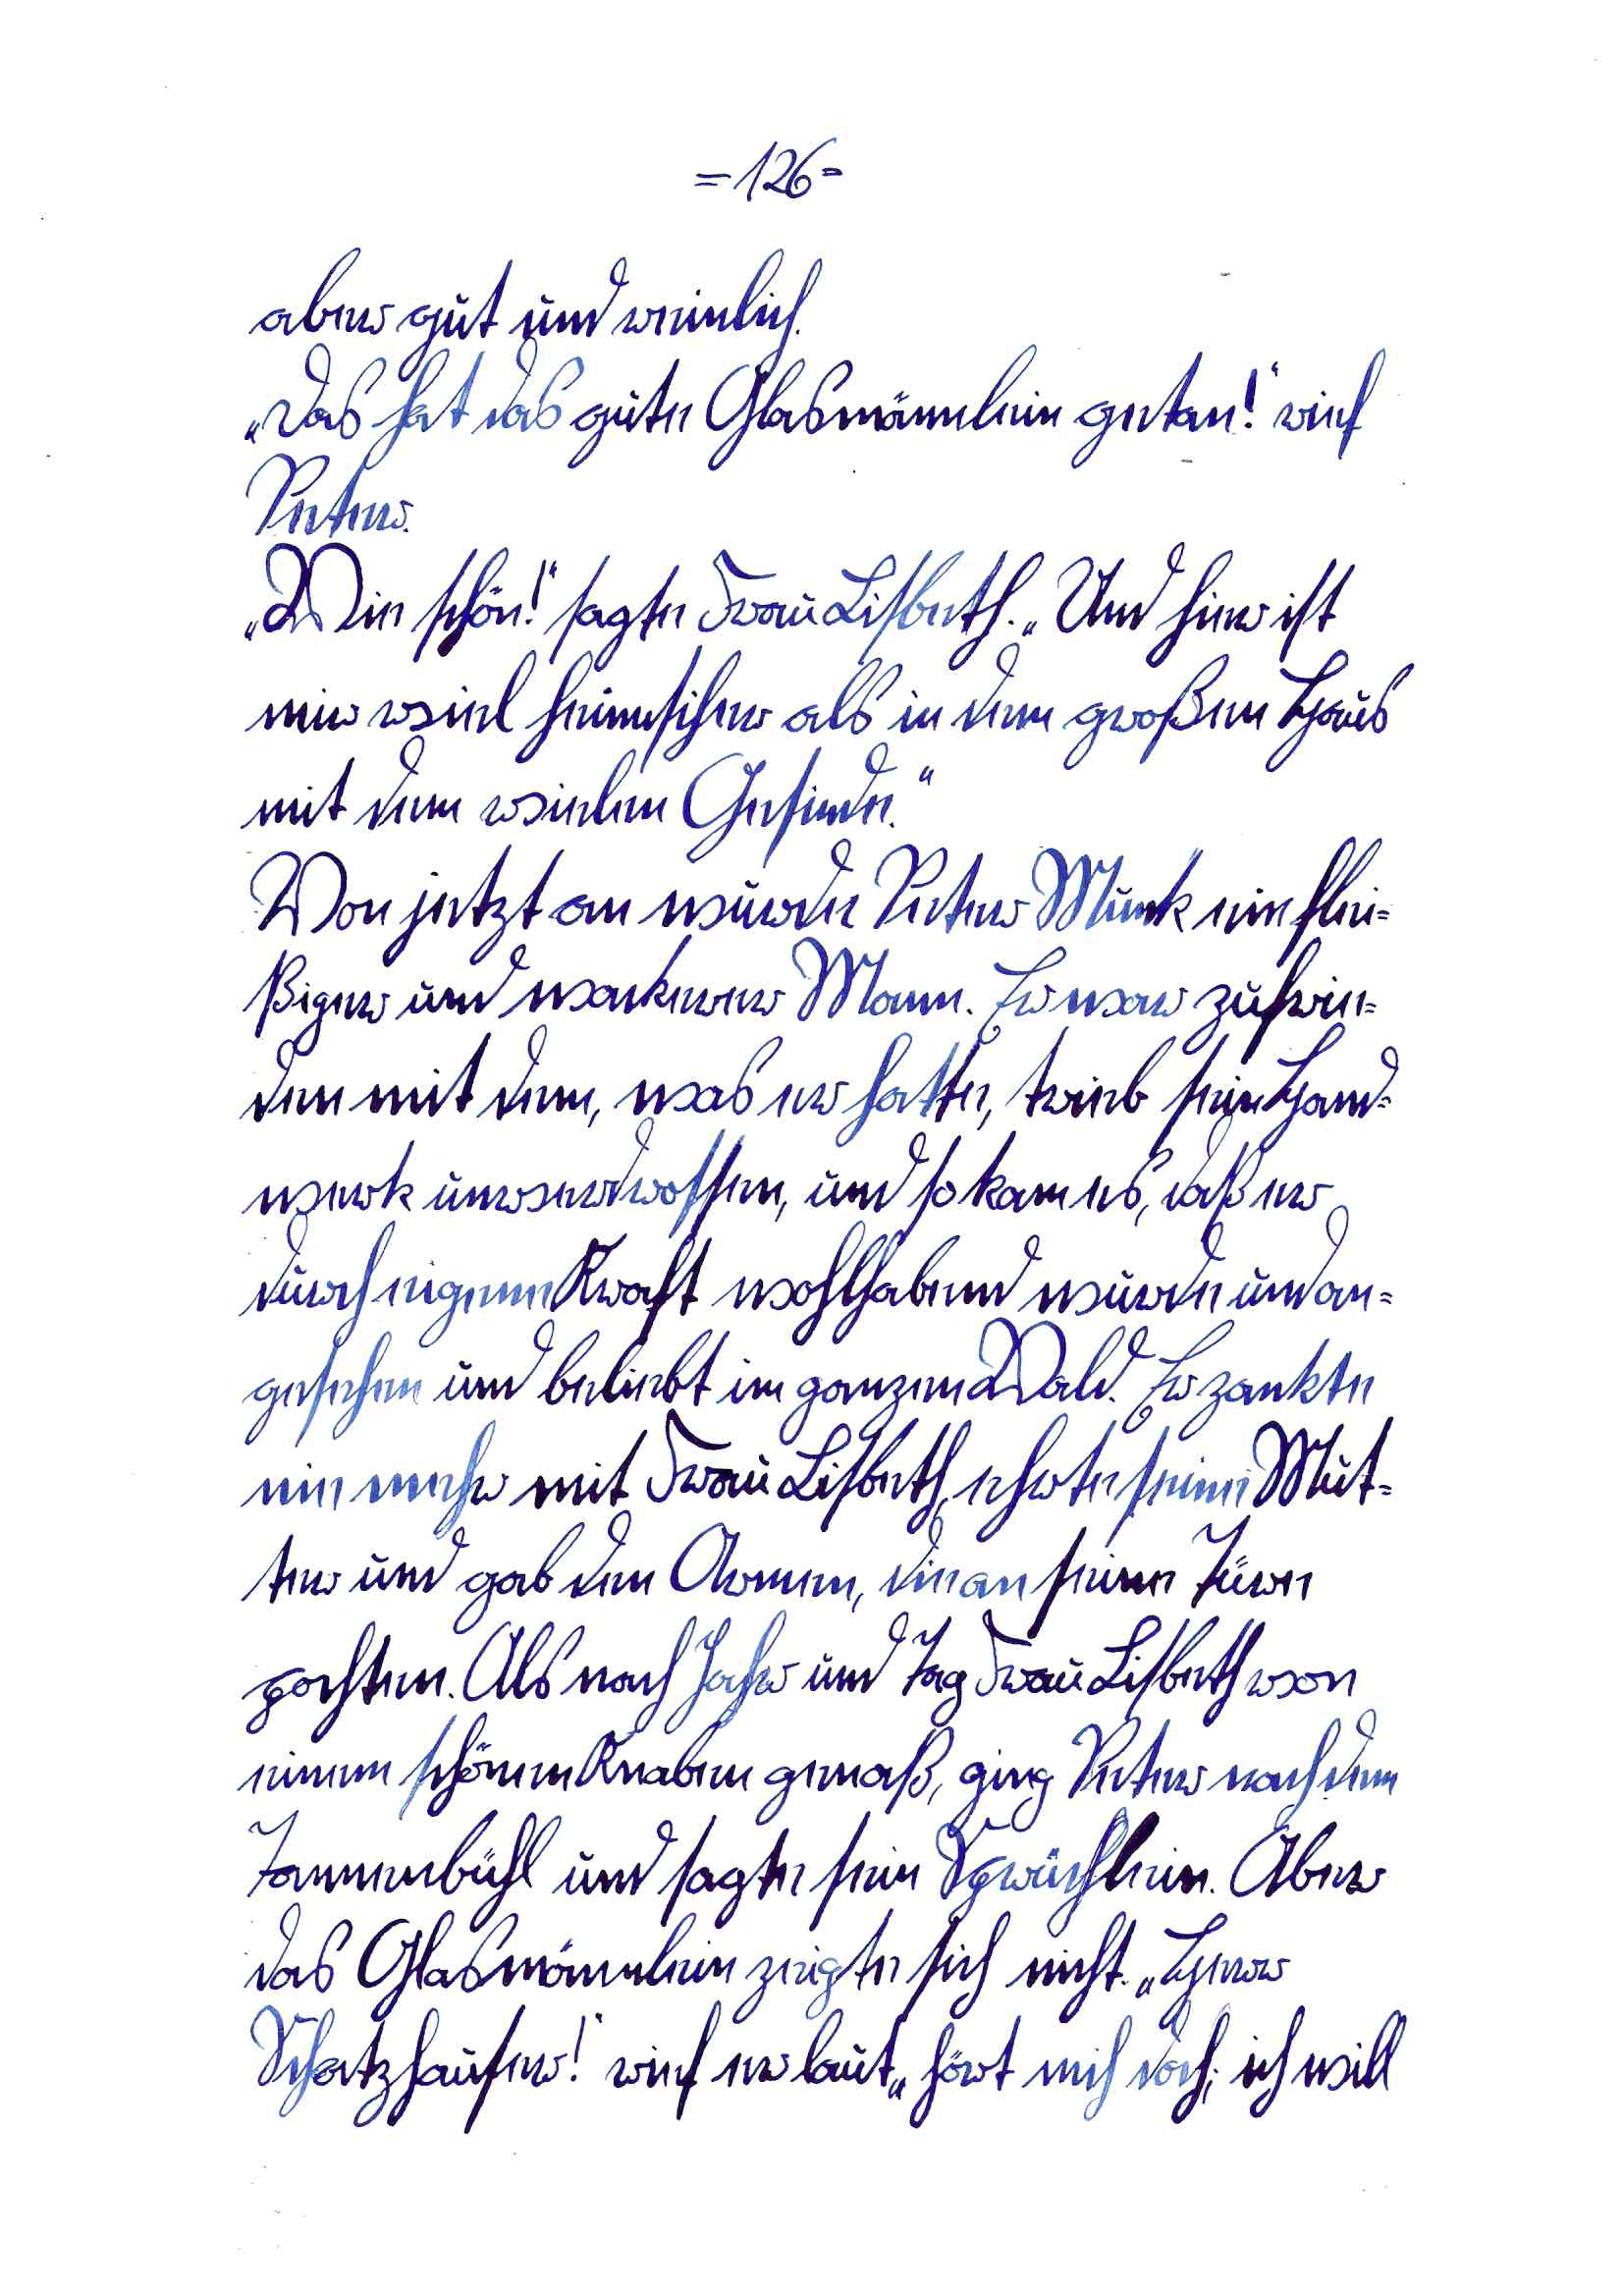 =126=
aber gut und reinlich.
„Das hat das gute Glasmännlein getan!" rief
Peter.
„Wie schön!" sagte Frau Lisbeth. „Und hier ist
mir viel heimischer als in dem großen Haus
mit dem vielen Gesinde."
Von jetzt an wurde Peter Munk ein flei=
ßiger und wackerer Mann. Er war zufrie=
den mit dem, was er hatte, trieb sein Hand=
werk unverdrossen, und so kam es, daß er
durch eigene Kraft wohlhabend wurde und an=
gesehen und beliebt im ganzen Wald. Er zankte
nie mehr mit Frau Lisbeth, ehrte seine Mut=
ter und gab den Armen, die an seine Türe
pochten. Als nach Jahr und Tag Frau Lisbeth von
einem schönen Knaben genaß, ging Peter nach dem
Tannenbühl und sagte sein Sprüchlein. Aber
das Glasmännlein zeigte sich nicht. „Herr
Schatzhauser!" rief er laut, „hört mich doch; ich will